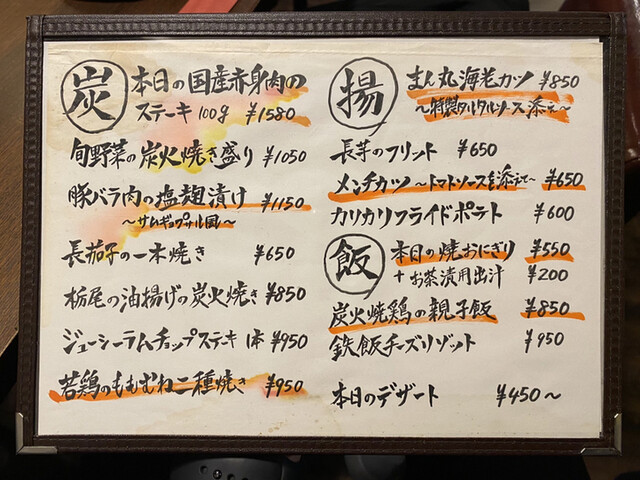 炭
本日の国産赤身肉の
ステーキ 100g ¥1580
旬野菜の炭火焼き盛り ¥1050
豚バラ肉の塩麹漬け ¥1150
〜サムギョプサル風〜
長茄子の一本焼き ¥650
栃尾の油揚げの炭火焼き ¥850
ジューシーラムチョップステーキ 1本 ¥950
若鶏のももむね二種焼き ¥950
揚
まん丸海老カツ ¥850
〜特製タルタルソース添え〜
長芋のフリット ¥650
メンチカツ〜トマトソースを添えて〜 ¥650
カリカリフライドポテト ¥600
飯
本日の焼おにぎり ¥550
+お茶漬用出汁 ¥200
炭火焼鶏の親子飯 ¥850
鉄飯チーズリゾット ¥950
本日のデザート ¥450〜